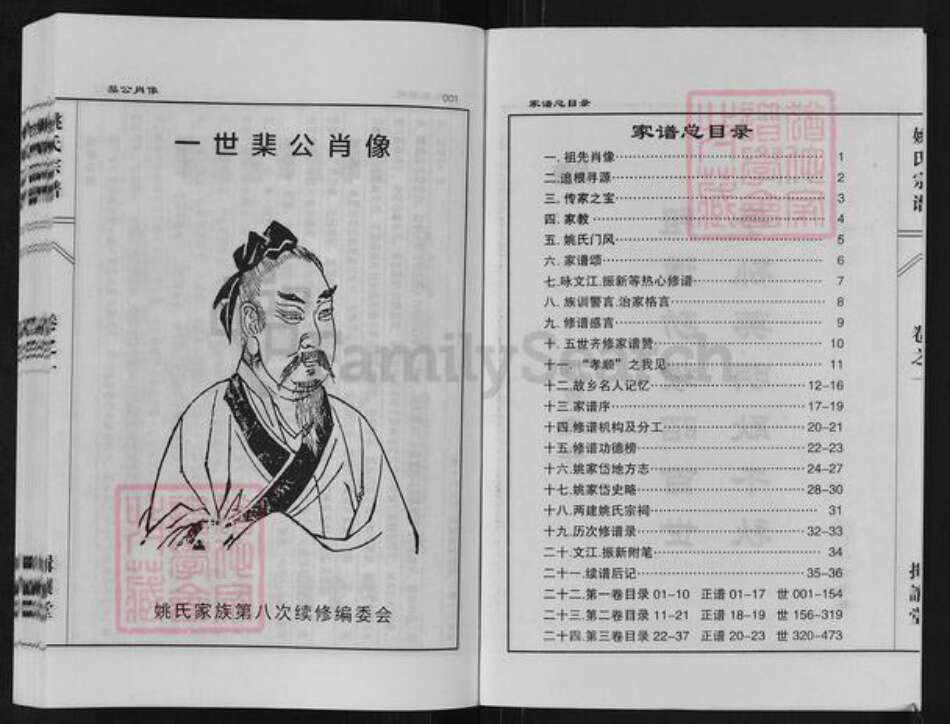 棐公肖像
001
一世棐公肖像
姚氏家族第八次续修编委会
姚氏宗谱
家谱总目录
家谱总目录
一. 祖先肖像 1
二.追根寻源 2
三. 传家之宝 3
四. 家教 4
五. 姚氏门风 5
六. 家谱颂 6
七.咏文江.振新等热心修谱 7
八. 族训警言.治家格言 8
九. 修谱感言 9
十. 五世齐修家谱赞 10
十一.“孝顺”之我见 11
十二.故乡名人记忆 12-16
十三.家谱序 17-19
十四.修谱机构及分工 20-21
十五.修谱功德榜 22-23
十六.姚家岱地方志 24-27
十七.姚家岱史略 28-30
十八.两建姚氏宗祠 31
十九.历次修谱录 32-33
二十.文江.振新附笔 34
二十一.续谱后记 35-36
二十二.第一卷目录 01-10 正谱 01-17 世 001-154
二十三.第二卷目录 11-21 正谱 18-19 世 156-319
二十四.第三卷目录 22-37 正谱 20-23 世 320-473
姚氏宗谱
卷之
FamilySearch